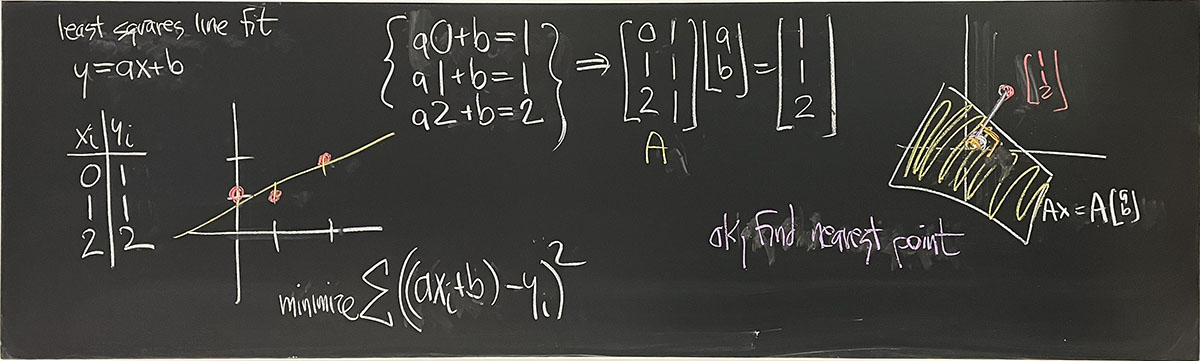 least squares line fit
y=ax+b
xi yi
0 1
1 1
2 2
a0+b=1
a1+b=1
a2+b=2
⇒
[0 1
1 1
2 1] [a
b] = [1
1
2]
A
minimize ∑((axi+b)-yi)²
[1
1
2]
Ax=A[a
b]
ok, find nearest point